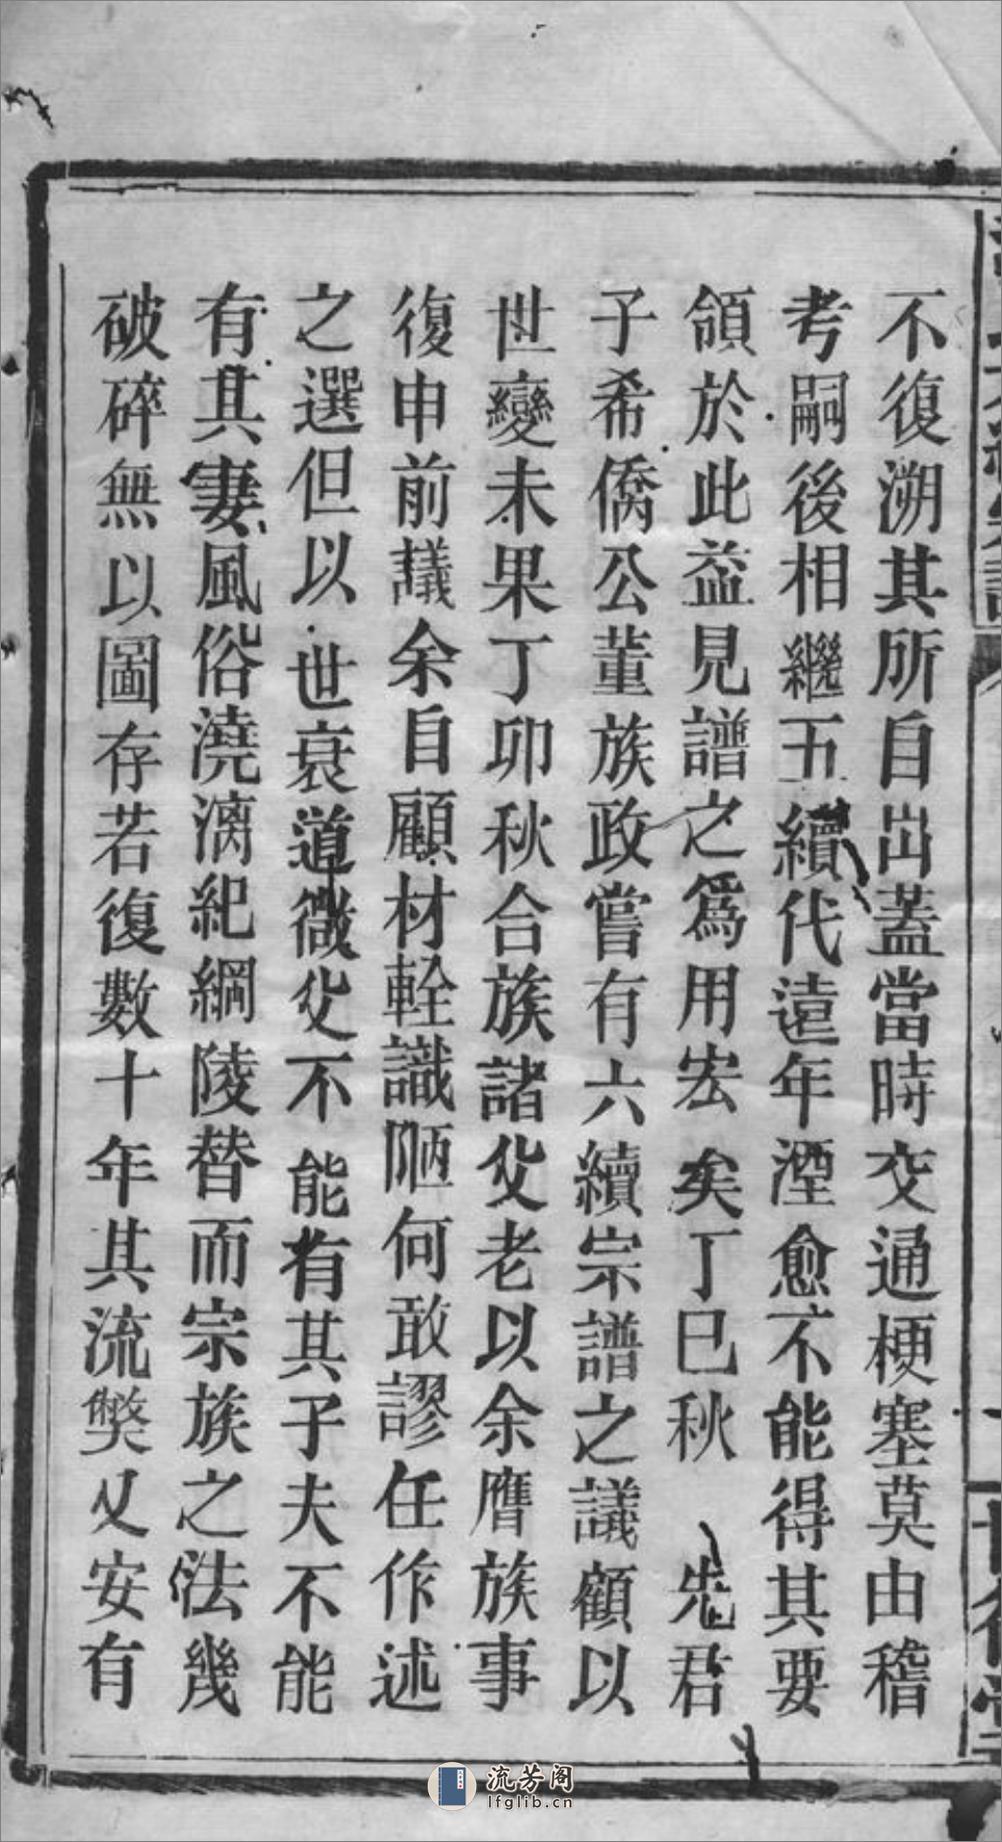 不復溯其所自出蓋當時交通梗塞莫由稽
考嗣後相繼五續代遠年湮愈不能得其要
領於此益見譜之爲用宏矣丁巳秋 先君
子希僑公董族政嘗有六續宗譜之議顧以
世變未果丁卯秋合族諸父老以余膺族事
復申前議余自顧材輇識陋何敢謬任作述
之選但以世衰道微父不能有其子夫不能
有其妻風俗澆漓紀綱陵替而宗族之法幾
破碎無以圖存若復數十年其流獘又安有
流芳阁
lfglib.cn